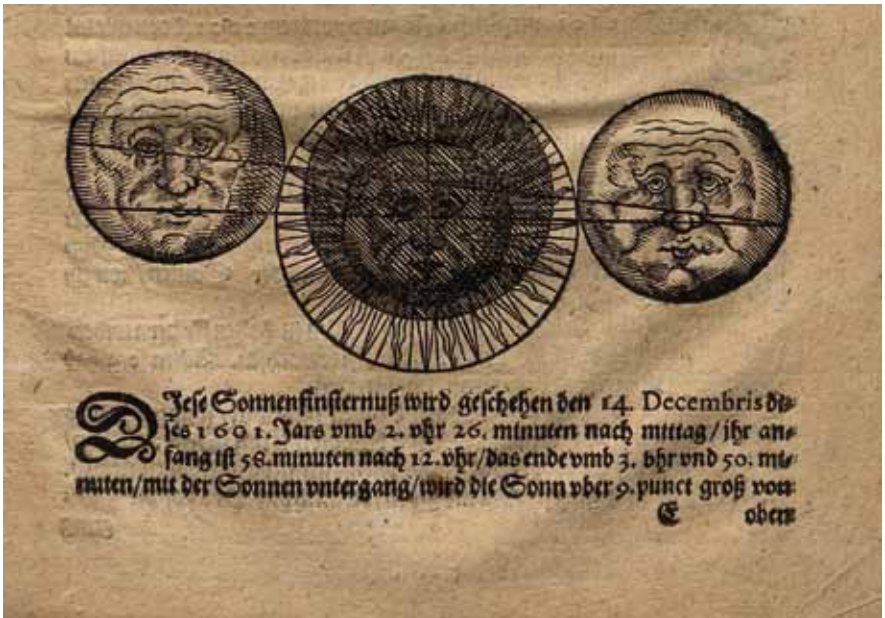 DJese Sonnenfinsternuß wird geschehen den 14. Decembris di-
ses 1601. Jars vmb 2. vhr 26. minuten nach mittag/ jhr an-
fang ist 58. minuten nach 12. vhr/ das ende vmb 3. vhr vnd 50. mi-
nuten/ mit der Sonnen vntergang/ wird die Sonn vber 9. punct groß von
E oben